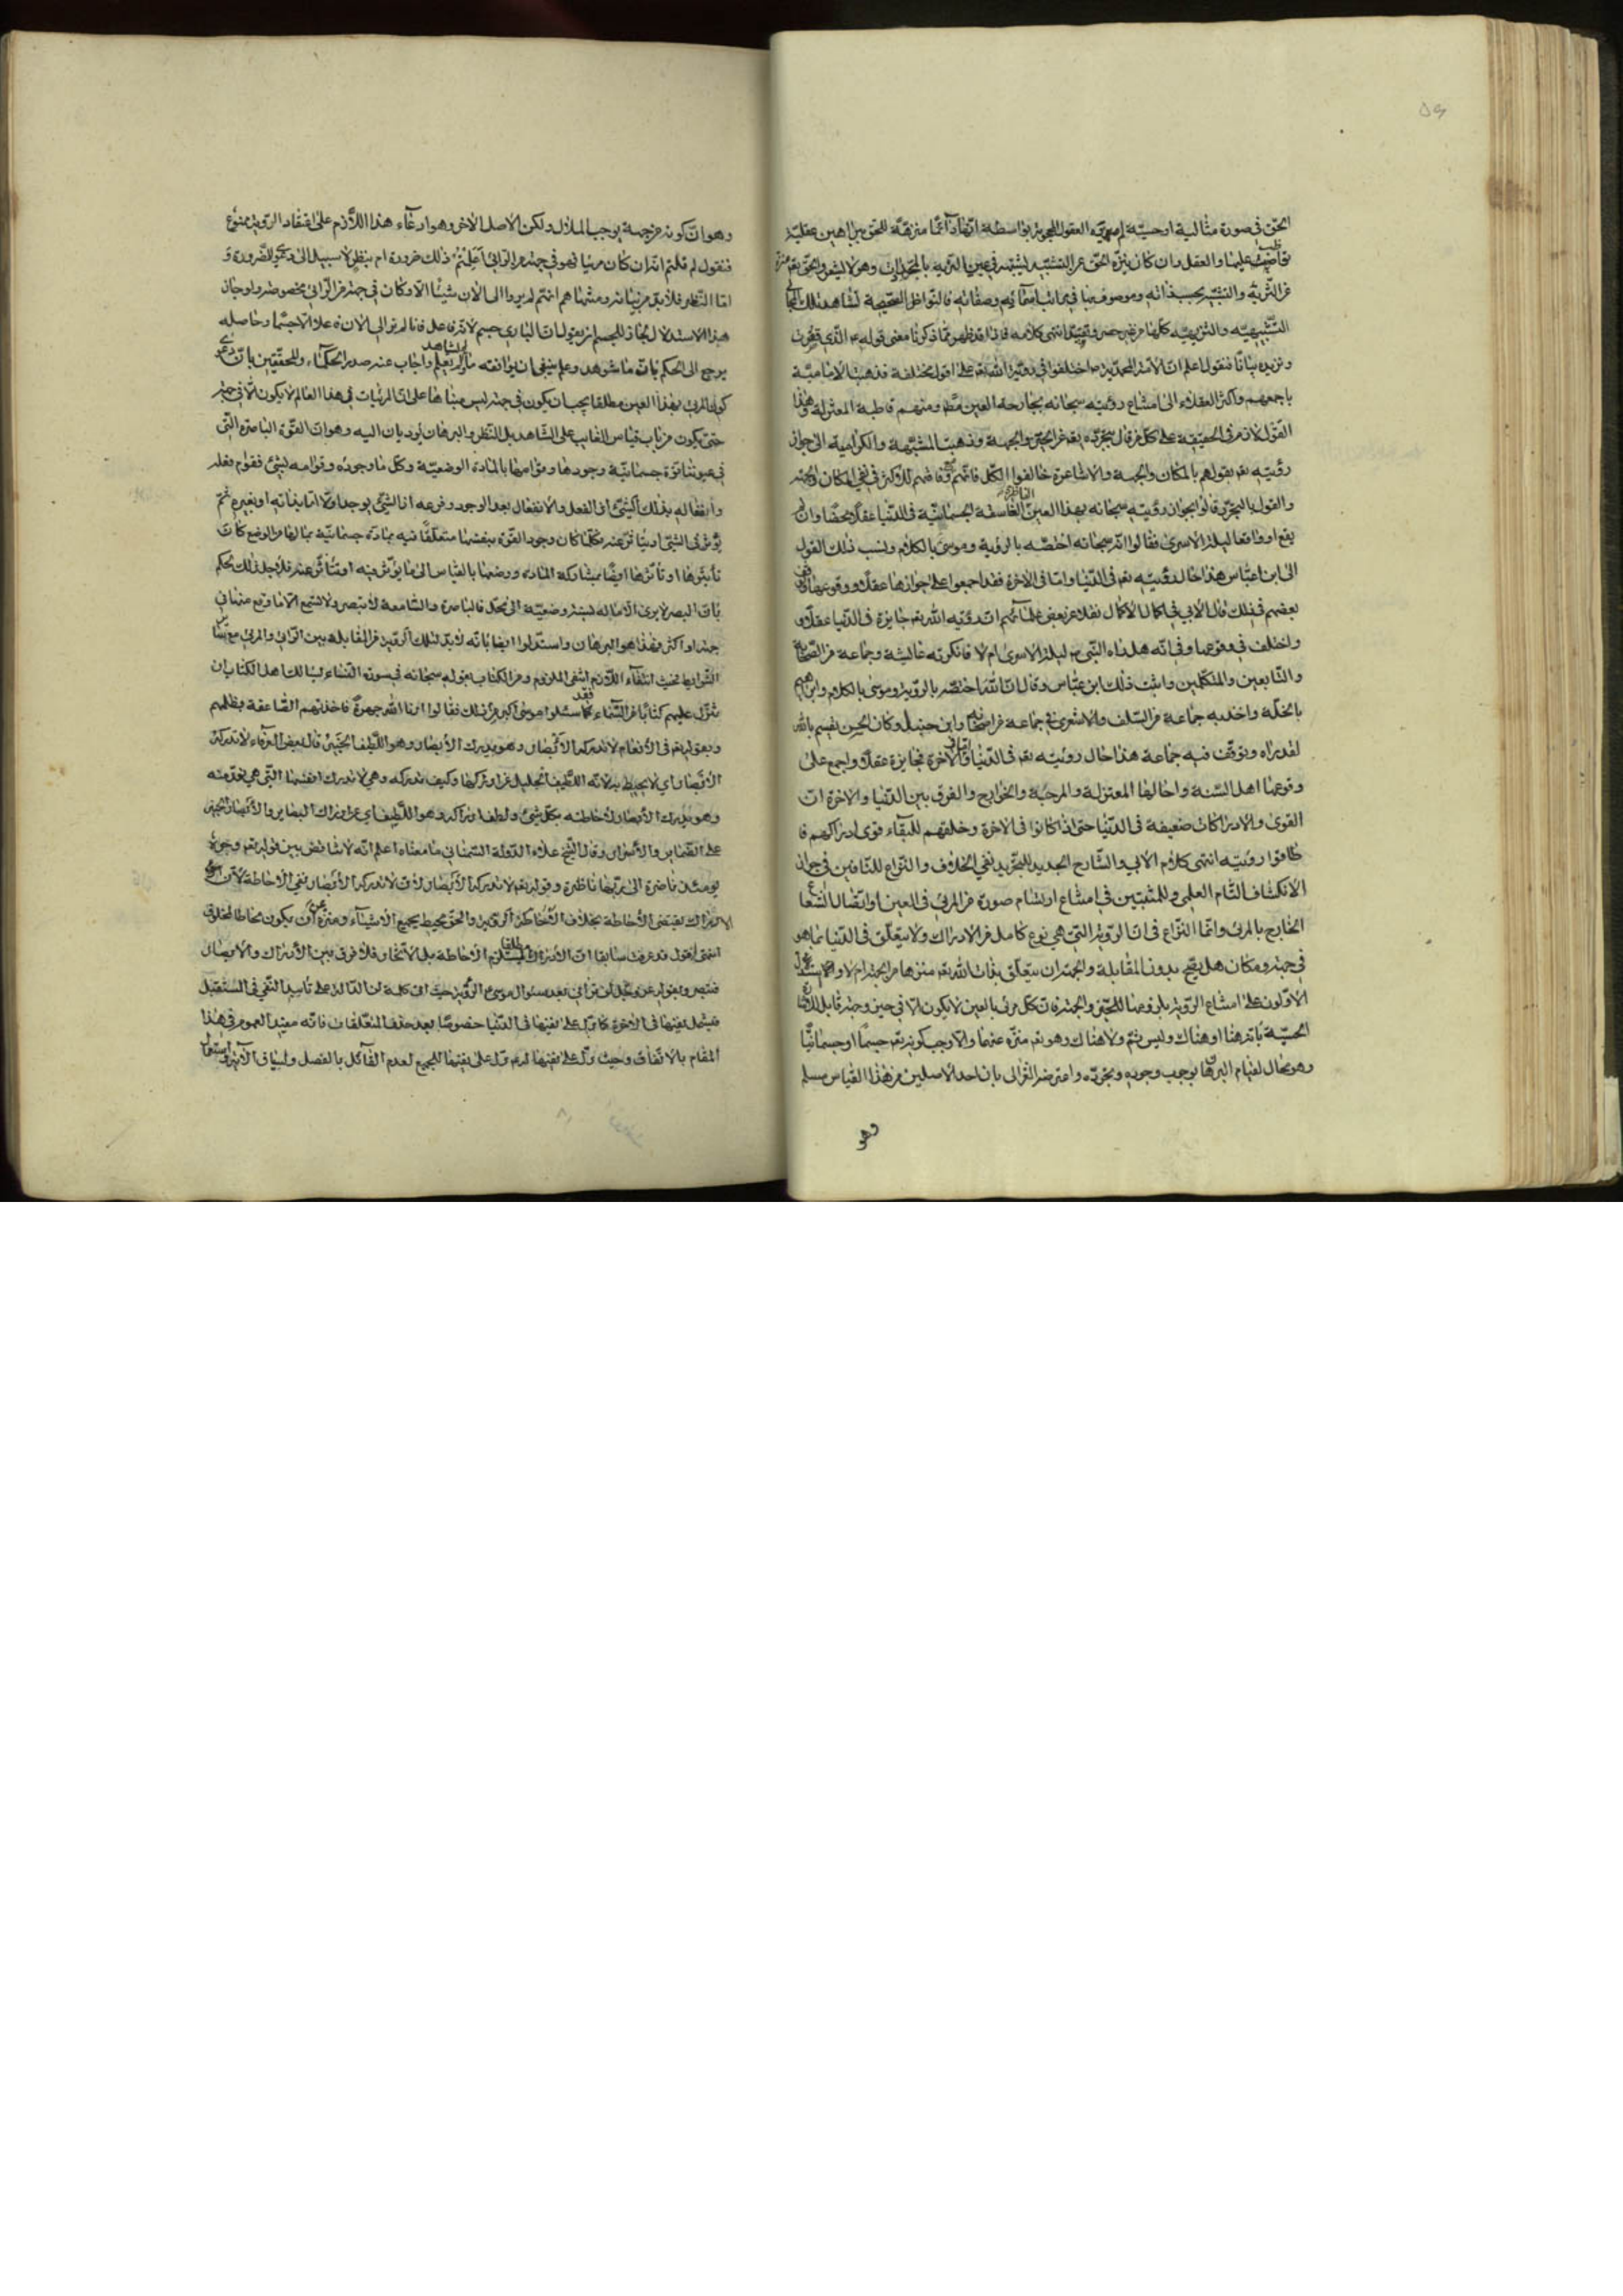 الحق فى صورة مثالية او حسية لم العقول المحجوبة بواسطة انها دائما منزهة للحق ببراهين عقلية
عليها والعقل وان كان ينزه الحق عن التشبيه يشبهه فى عين التنزيه بالمجردات وهو لا يشعر والحق تعم منزه
عن التنزيه والتشبيه بحسب ذاته وموصوف بهما فى مراتب اسمائه وصفاته فالنواظر الصحيحة تشاهد تلك
التشبيهية والتنزيهية كلها من غير حصر وتقييد انتهى كلامه فاذا قد ظهر مما ذكرنا معنى قوله ع الذى
ونزيده بيانا فنقول اعلم ان الامة المحمدية ص اختلفوا فى رؤية الله تعم على اقول مختلفة فذهبت الامامية
باجمعهم واكثر العقلاء الى امتناع رؤيته سبحانه بجارحة العين مطم ومنهم قاطبة المعتزلة وهذا
القول لازم فى الحقيقة على كل من قال بتجرده تعم عن الحيز والجهة وذهبت المشبهة والكرامية الى جواز
رؤيته تعم بقولهم بالمكان والجهة والاشاعرة خالفوا الكل فانهم مع وفاقهم للاكثر فى نفى المكان والجهة
والقول بالتجرد قالوا بجواز رؤيته سبحانه بهذا العين الناظرة الفاسقة الجسمانية فى الدنيا عقلا محضا وان لم
يقع او واقعا ليلة الاسرى فقالوا انه سبحانه اختصه بالرؤية وموسى بالكلام ونسب ذلك القول
الى ابن عباس هذا حال رؤيته تعم فى الدنيا واما فى الاخرة فقد اجمعوا على جوازها عقلا ووقوعها
بعضهم فى ذلك قال الابى فى اكمال الاكمال نقلا عن بعض علمائهم ان رؤية الله تعم جايزة فى الدنيا عقلا و
واختلف فى وقوعها وفى انه هل راه النبى ص ليلة الاسرى ام لا فانكرته عايشة وجماعة من الصحابة
والتابعين والمتكلمين واثبت ذلك ابن عباس وقال ان الله اختصه بالرؤية وموسى بالكلام وابراهيم
بالخلة واخذ به جماعة من السلف والاشعرى فى جماعة من اصحابه وابن حنبل وكان الحسن يقسم بالله
لقد راه وتوقف فيه جماعة هذا حال رؤيته تعم فى الدنيا واما فى الاخرة فجايزة عقلا واجمع على
وقوعها اهل السنة واحالها المعتزلة والمرجئة والخوارج والفرق بين الدنيا والاخرة ان
القوى والادراكات ضعيفة فى الدنيا حتى اذا كانوا فى الاخرة وخلقهم للبقاء قوى ادراكهم فا
طاقوا رؤيته انتهى كلام الابى والشارح الجديد للتجريد نفى الخلاف والنزاع للنافين فى جواز
الانكشاف التام العلمى وللمثبتين فى امتناع ارتسام صورة من المرئى فى العين او اتصال الشعاع
الخارج بالمرئى وانما النزاع فى ان الرؤية التى هى نوع كامل من الادراك ولا يتعلق فى الدنيا بما هو
فى جهة ومكان هل يصح بدون المقابلة والجهة ان يتعلق بذات الله تعم منزها من الجهة ام لا واستدل
الاولون على امتناع الرؤية بلزومها للحيز والجهة فان كل مرئى بالعين لا يكون الا فى حيز وجهة قابل للاشارة
الحسية بانه هنا او هناك وليس ثم ولا هناك وهو تعم منزه عنهما والا وجب كونه تعم جسما او جسمانيا
وهو محال لقيام البرهان بوجوب وجوده وتجرده واعترض الغزالى بان احد الاصلين من هذا القياس مسلم
وهو
وهو ان كونه من جهة يوجب المحال ولكن الاصل الاخر وهو ادعاء هذا اللازم على اعتقاد الرؤية ممنوع
فنقول لم قلتم انه ان كان مرئيا فهو فى جهة من الرائى اعلمتم ذلك ضرورة ام بنظر لا سبيل الى دعوى الضرورة و
اما النظر فلا بد من بيانه ومنتهاهم انهم لم يروا الى الان شيئا الا وكان فى جهة من الرائى مخصوصة ولو جاز
هذا الاستدلال لجاز للمجسم ان يقول ان البارى جسم لانه فاعل فانا لم نر الى الان فاعلا الا جسما وحاصله
يرجع الى الحكم بان ما شوهد وعلم ينبغى ان يوافقه ما لم يشاهد ولم يعلم واجاب عنه صدر الحكماء والمحققين بان
كون المرئى بهذا العين مطلقا يجب ان يكون فى جهة ليس مبناها على ان المرئيات فى هذا العالم لا يكون الا فى جهة
حتى يكون من باب قياس الغايب على الشاهد بل النظر والبرهان يؤديان اليه وهو ان القوة الباصرة التى
فى عيوننا قوة جسمانية وجودها وقوامها بالمادة الوضعية وكل ما وجوده وقوامه لشئ فقوام فعله
وانفعاله بذلك الشئ اذ الفعل والانفعال بعد الوجود وفرعه اذ الشئ يوجد اولا اما بذاته او بغيره ثم
يؤثر فى الشئ او يتاثر عنه فكلما كان وجود القوة بنفسها متعلقا فيه بمادة جسمانية بما لها من الوضع كانت
تاثيرها او تاثرها ايضا بمشاركة المادة ووضعها بالقياس الى ما يؤثر فيه او يتاثر عنه فلاجل ذلك نحكم
بان البصر لا يرى الا ما له نسبة وضعية الى محل الباصرة والسامعة لا تبصر ولا تسمع الا ما وقع منها فى
جهة او اكثر فهذا هو البرهان واستدلوا ايضا بانه لا بد لتلك الرؤية من المقابلة بين الرائى والمرئى مع
الشرايط بحيث انتفاء اللازم انتفى الملزوم ومن الكتاب بقوله سبحانه فى سورة النساء يسالك اهل الكتاب ان
تنزل عليهم كتابا من السماء فقد سئلوا موسى اكبر من ذلك فقالوا ارنا الله جهرة فاخذتهم الصاعقة بظلمهم
وبقوله تعم فى الانعام لا تدركه الابصار وهو يدرك الابصار وهو اللطيف الخبير قال بعض العرفاء لا تدركه
الابصار اى لا يحيط به لانه اللطيف الجليل عن ادراكها وكيف تدركه وهى لا تدرك انفسها التى هى نور منه
وهو يدرك الابصار لاحاطته بكل شئ ولطف ادراكه وهو اللطيف اى عن ادراك البصاير والابصار الخبير
على الضماير والاسرار وقال الشيخ علاء الدولة السمنانى ما معناه اعلم انه لا تناقض بين قوله تعم وجوه
يومئذ ناضرة الى ربها ناظرة وقوله تعم لا تدركه الابصار لان لا تدركه الابصار نفى الاحاطة لان
الادراك يقتضى الاحاطة بخلاف الرؤية والحق محيط بجميع الاشياء ومنزه عن ان يكون محاطا لمخلوق
انتهى اقول قد عرفت سابقا ان الادراك مطلقا ليس يستلزم الاحاطة بل الاتحاد فلا فرق بين الادراك والابصار
فتبصر وبقوله عز وجل لن ترانى بعد سئوال موسى ع الرؤية حيث ان كلمة لن الدالة على تاييد النفى فى المستقبل
فيشمل نفيها فى الاخرة كما يدل على نفيها فى الدنيا خصوصا بعد حذف المتعلقات فانه مفيد العموم فى هذا
المقام بالاتفاق وحيث دل على نفيها له ع دل على نفيها للجميع لعدم القائل بالفصل ولسياق الآية